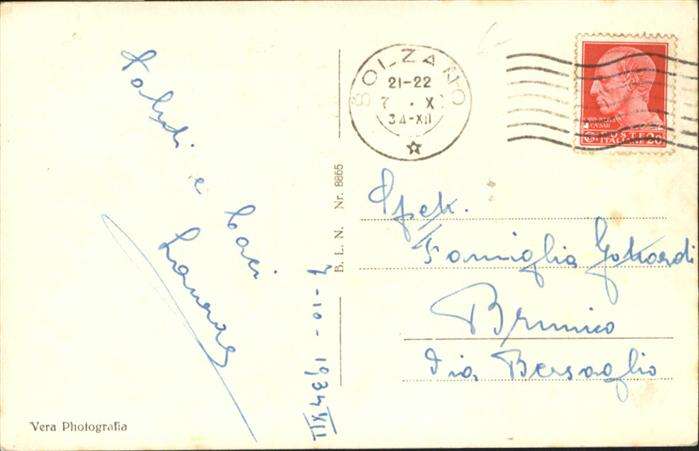 Saluti e baci
7-10-1934 XII
Vera Photografia
B. L. N. Nr. 8665
BOLZANO
21-22
7 . X
34-XII
Spett.
Famiglia
Brunico
Via Bersaglio